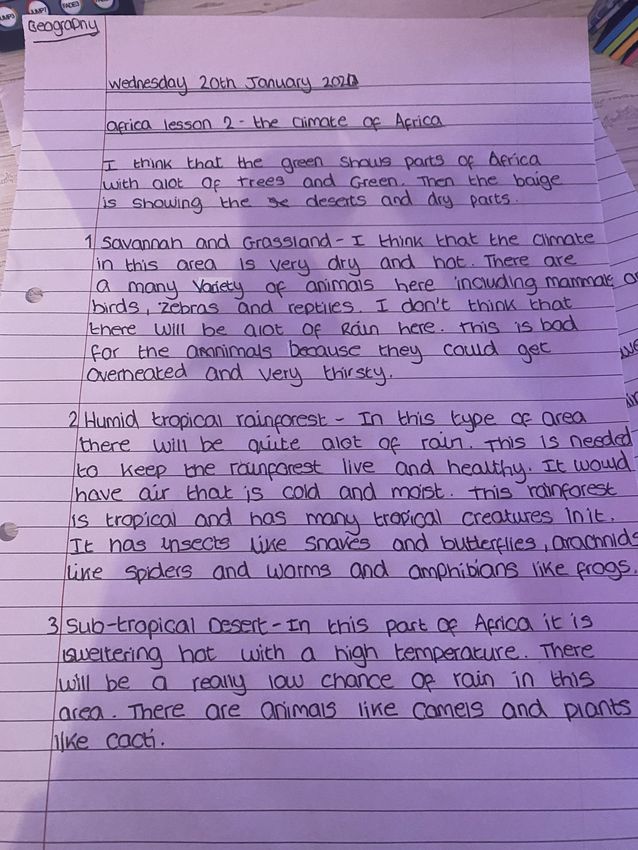 JUMP3 JUMP7 FADE3
Geography
Wednesday 20th January 2021
africa lesson 2 - the climate of Africa
I think that the green shows parts of Africa
with alot of trees and Green. Then the baige
is showing the deserts and dry parts.
1 Savannah and Grassland - I think that the climate
in this area is very dry and hot. There are
a many variety of animals here including mammals
birds, zebras and reptiles. I don't think that
there will be alot of Rain here. This is bad
for the ananimals because they could get
overheated and very thirsty.
2 Humid tropical rainforest - In this type of area
there will be quite alot of rain. This is needed
to keep the rainforest live and healthy. It would
have air that is cold and moist. This rainforest
is tropical and has many tropical creatures in it.
It has insects like snakes and butterflies, arachnids
like spiders and worms and amphibians like frogs.
3 Sub-tropical Desert - In this part of Africa it is
sweltering hot with a high temperature. There
will be a really low chance of rain in this
area. There are animals like camels and plants
like cacti.